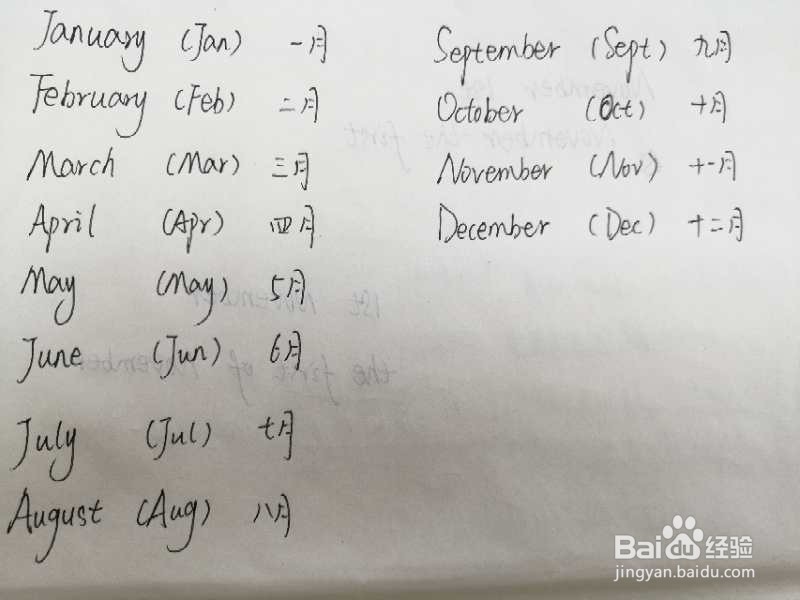 January (Jan) 一月
February (Feb) 二月
March (Mar) 三月
April (Apr) 四月
May (May) 5月
June (Jun) 6月
July (Jul) 七月
August (Aug) 八月
September (Sept) 九月
October (Oct) 十月
November (Nov) 十一月
December (Dec) 十二月
November 1st
November the first
1st November
the first of November
Bai du 经验
jingyan.baidu.com